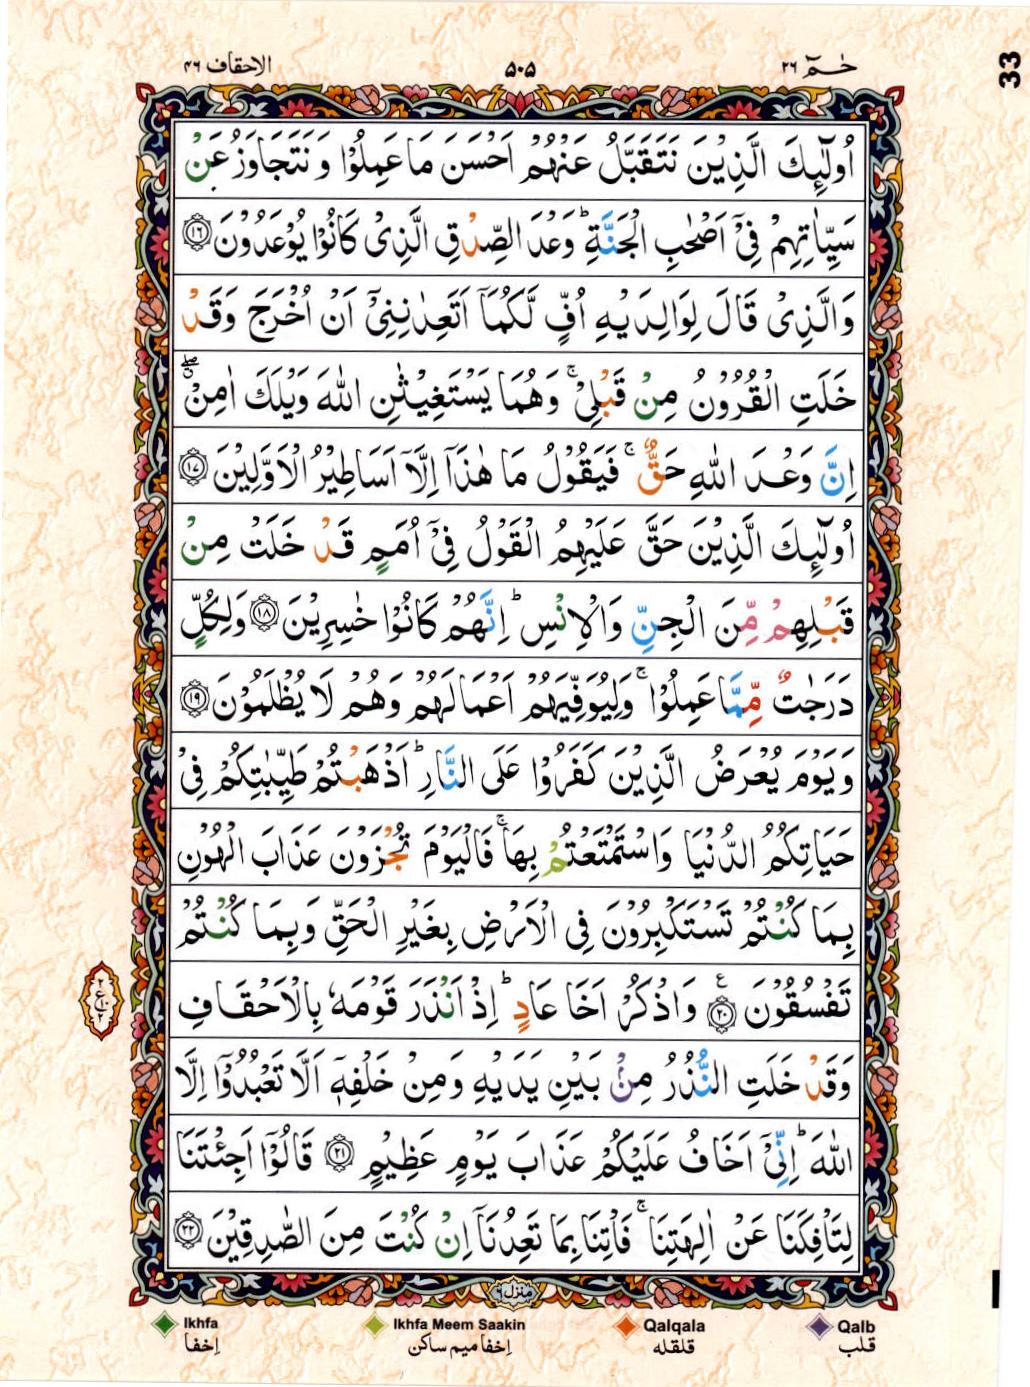 الاحقاف ۴۶ ۵۰۵ حٰمٓ ۲۶
33
اُولٰٓئِكَ الَّذِيْنَ نَتَقَبَّلُ عَنْهُمْ اَحْسَنَ مَا عَمِلُوْا وَ نَتَجَاوَزُ عَنْ
سَيِّاٰتِهِمْ فِيْٓ اَصْحٰبِ الْجَنَّةِ ؕ وَعْدَ الصِّدْقِ الَّذِيْ كَانُوْا يُوْعَدُوْنَ ﴿۱۶﴾
وَالَّذِيْ قَالَ لِوَالِدَيْهِ اُفٍّ لَّكُمَاۤ اَتَعِدٰنِنِيْۤ اَنْ اُخْرَجَ وَقَدْ
خَلَتِ الْقُرُوْنُ مِنْ قَبْلِيْ ۚ وَهُمَا يَسْتَغِيْثٰنِ اللّٰهَ وَيْلَكَ اٰمِنْ ۖۗ
اِنَّ وَعْدَ اللّٰهِ حَقٌّ ۚ فَيَقُوْلُ مَا هٰذَاۤ اِلَّاۤ اَسَاطِيْرُ الْاَوَّلِيْنَ ﴿۱۷﴾
اُولٰٓئِكَ الَّذِيْنَ حَقَّ عَلَيْهِمُ الْقَوْلُ فِيْۤ اُمَمٍ قَدْ خَلَتْ مِنْ
قَبْلِهِمْ مِّنَ الْجِنِّ وَالْاِنْسِ ؕ اِنَّهُمْ كَانُوْا خٰسِرِيْنَ ﴿۱۸﴾ وَلِكُلٍّ
دَرَجٰتٌ مِّمَّا عَمِلُوْا ۚ وَلِيُوَفِّيَهُمْ اَعْمَالَهُمْ وَهُمْ لَا يُظْلَمُوْنَ ﴿۱۹﴾
وَيَوْمَ يُعْرَضُ الَّذِيْنَ كَفَرُوْا عَلَى النَّارِ ؕ اَذْهَبْتُمْ طَيِّبٰتِكُمْ فِيْ
حَيَاتِكُمُ الدُّنْيَا وَاسْتَمْتَعْتُمْ بِهَا ۚ فَالْيَوْمَ تُجْزَوْنَ عَذَابَ الْهُوْنِ
بِمَا كُنْتُمْ تَسْتَكْبِرُوْنَ فِي الْاَرْضِ بِغَيْرِ الْحَقِّ وَبِمَا كُنْتُمْ
تَفْسُقُوْنَ ﴿۲۰﴾ ع وَاذْكُرْ اَخَا عَادٍ ؕ اِذْ اَنْذَرَ قَوْمَهٗ بِالْاَحْقَافِ
وَقَدْ خَلَتِ النُّذُرُ مِنْۢ بَيْنِ يَدَيْهِ وَمِنْ خَلْفِهٖۤ اَلَّا تَعْبُدُوْۤا اِلَّا
اللّٰهَ ؕ اِنِّيْۤ اَخَافُ عَلَيْكُمْ عَذَابَ يَوْمٍ عَظِيْمٍ ﴿۲۱﴾ قَالُوْۤا اَجِئْتَنَا
لِتَاْفِكَنَا عَنْ اٰلِهَتِنَا ۚ فَاْتِنَا بِمَا تَعِدُنَاۤ اِنْ كُنْتَ مِنَ الصّٰدِقِيْنَ ﴿۲۲﴾
منزل ۶
Ikhfa Ikhfa Meem Saakin Qalqala Qalb
اِخفا اِخفا میم ساکن قلقله قلب